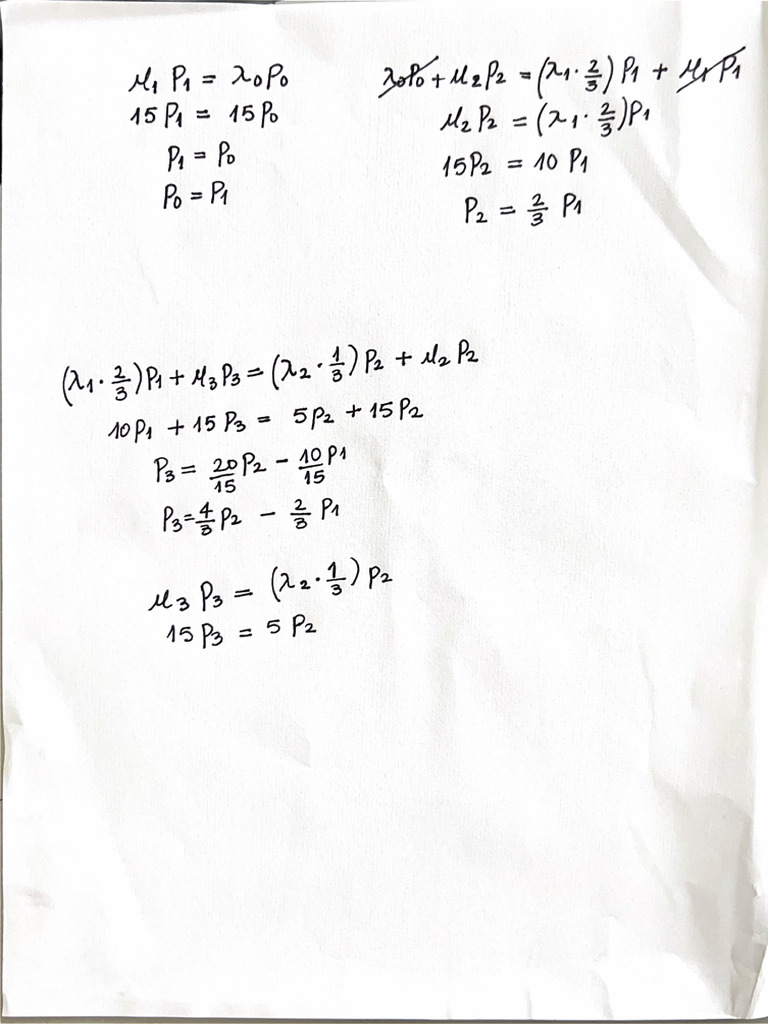 μ₁ P₁ = λ₀P₀
15 P₁ = 15 P₀
P₁ = P₀
P₀ = P₁
λ₀P₀ + μ₂P₂ = (λ₁ · 2/3) P₁ + μ₁ P₁
μ₂ P₂ = (λ₁ · 2/3) P₁
15P₂ = 10 P₁
P₂ = 2/3 P₁
(λ₁ · 2/3) P₁ + μ₃ P₃ = (λ₂ · 1/3) P₂ + μ₂ P₂
10P₁ + 15 P₃ = 5P₂ + 15 P₂
P₃ = 20/15 P₂ - 10/15 P₁
P₃ = 4/3 P₂ - 2/3 P₁
μ₃ P₃ = (λ₂ · 1/3) P₂
15 P₃ = 5 P₂